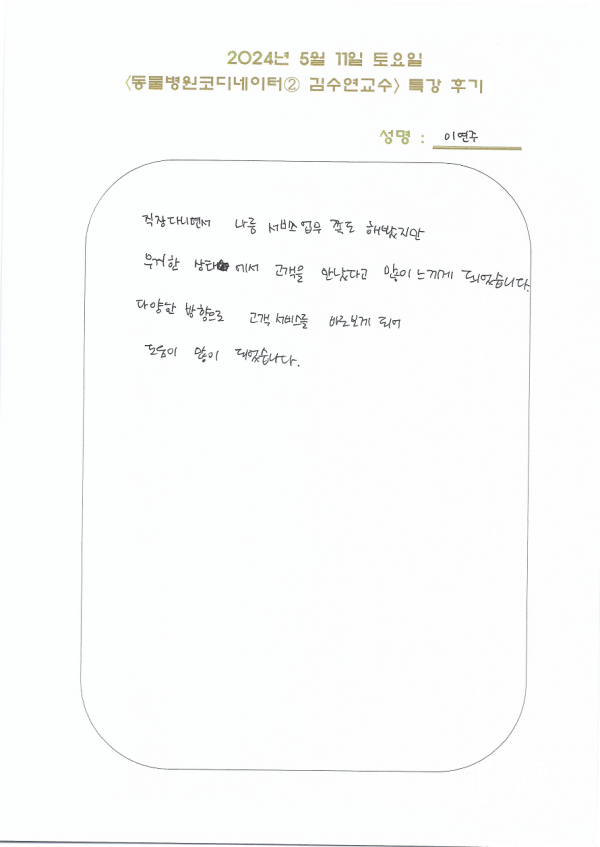 2024년 5월 11일 토요일
<동물병원코디네이터② 김수연교수> 특강 후기
성명 : 이연주
직장다니면서 나름 서비스업무 쪽도 해봤지만
무지한 상태에서 고객을 만났다고 많이 느끼게 되었습니다.
다양한 방향으로 고객 서비스를 바로보게 되어
도움이 많이 되었습니다.